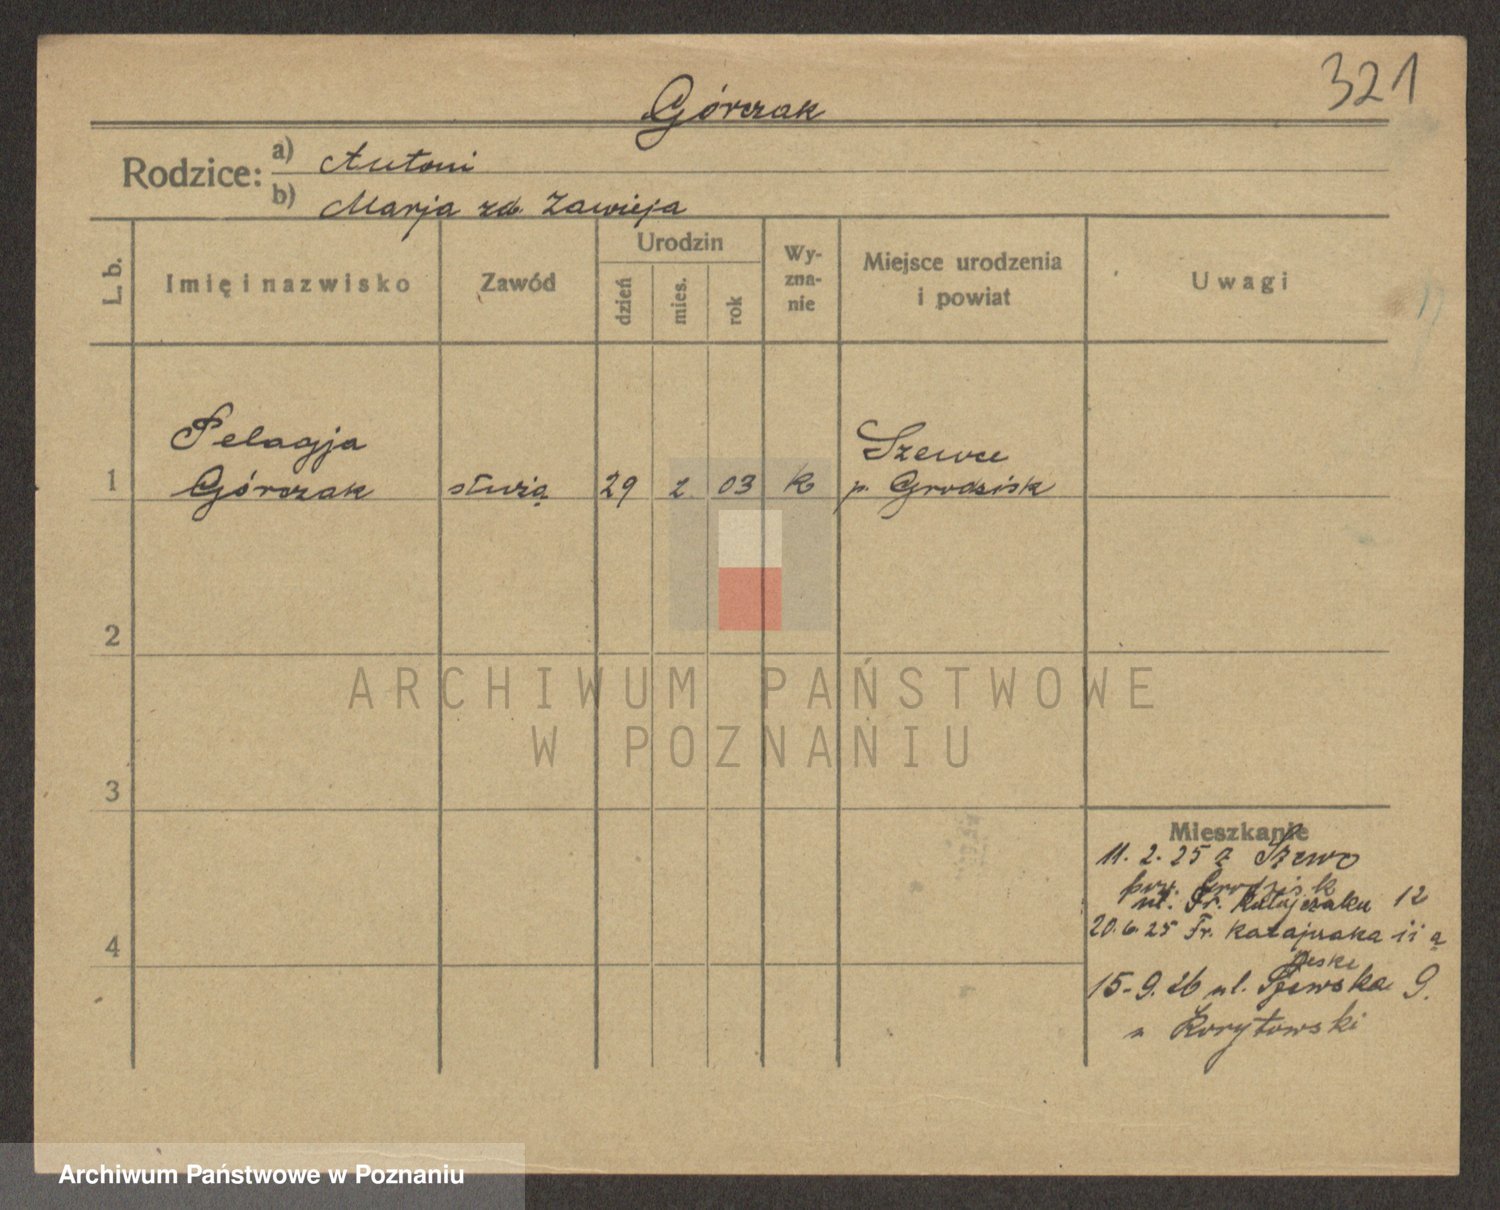 321
Górczak
Rodzice: a) Antoni
b) Marja zd. Zawieja
L. b.
Imię i nazwisko
Zawód
Urodzin
dzień
mies.
rok
Wy-
zna-
nie
Miejsce urodzenia
i powiat
Uwagi
Pelagja
1 Górczak służą 29 2 03 k
Szewce
p. Grodzisk
2
3
4
Mieszkanie
11. 2. 25 z Szewc
pow. Grodzisk
ul. Fr. Ratajczaka 12
20. 6. 25 Fr. Ratajczaka 11 a
15-9.26 ul. Szewska 9.
u Korytowski
ARCHIWUM PAŃSTWOWE
W POZNANIU
Archiwum Państwowe w Poznaniu